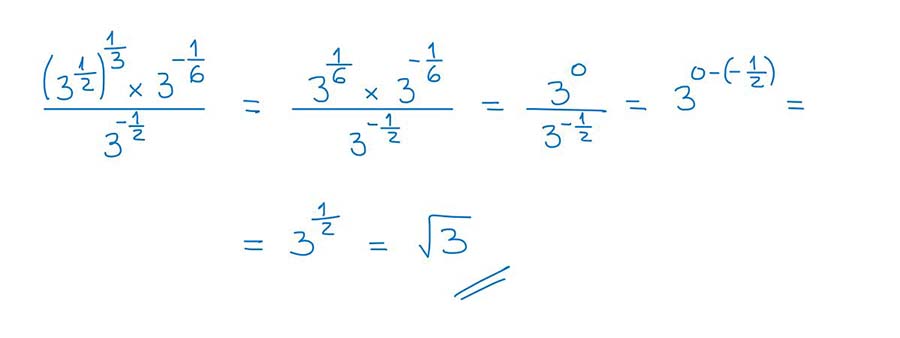 \frac{\left(3^{\frac{1}{2}}\right)^{\frac{1}{3}} \times 3^{-\frac{1}{6}}}{3^{-\frac{1}{2}}} = \frac{3^{\frac{1}{6}} \times 3^{-\frac{1}{6}}}{3^{-\frac{1}{2}}} = \frac{3^{0}}{3^{-\frac{1}{2}}} = 3^{0-\left(-\frac{1}{2}\right)} =
= 3^{\frac{1}{2}} = \sqrt{3}